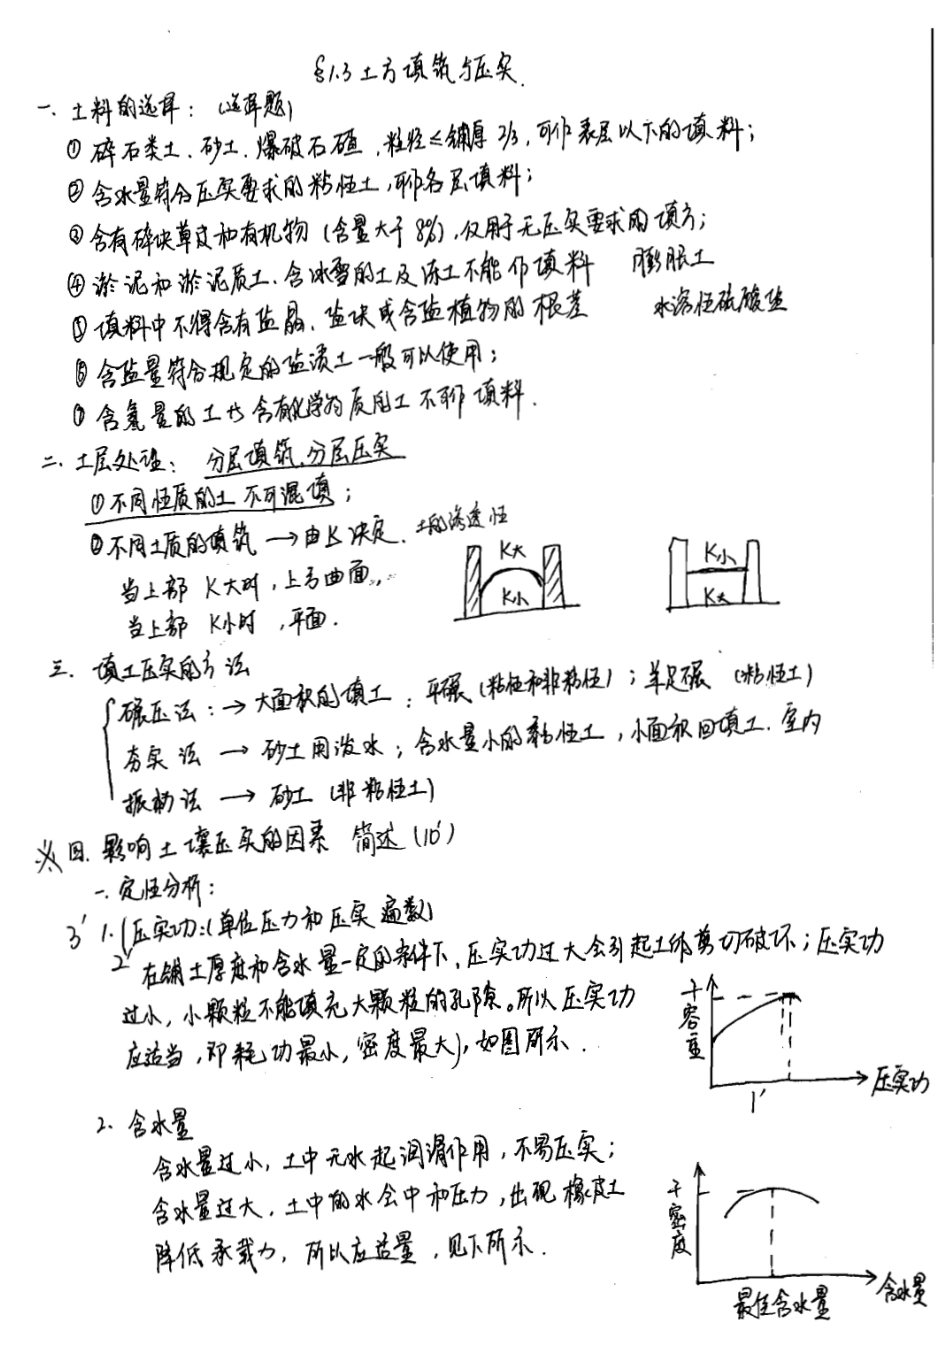 §1.3 土方填筑与压实.
一. 土料的选择: (选择题)
① 碎石类土、砂土、爆破石碴, 粒径≤铺厚2/3, 可作表层以下的填料;
② 含水量符合压实要求的粘性土, 可作各层填料;
③ 含有碎块草皮和有机物 (含量大于8%), 仅用于无压实要求的填方;
④ 淤泥和淤泥质土、含冰雪的土及冻土不能作填料 膨胀土
⑤ 填料中不得含有盐晶、盐块或含盐植物的根茎 水溶性硫酸盐
⑥ 含盐量符合规定的盐渍土一般可以使用;
⑦ 含氡量的土与含有化学物质的土不可作填料.
二. 土层处理: 分层填筑、分层压实
①不同性质的土不可混填;
②不同土质的填筑 → 由K决定. 土的渗透性
K大
K小
K小
K大
当上部 K大时, 上弓曲面,
当上部 K小时, 平面.
三. 填土压实的方法
碾压法: → 大面积的填土: 平碾 (粘性和非粘性); 羊足碾 (粘性土)
夯实法 → 砂土用泼水; 含水量小的黏性土, 小面积回填土. 室内
振动法 → 砂土 (非粘性土)
※ 四. 影响土壤压实的因素 简述 (10′)
一. 定性分析:
3′ 1. 压实功: (单位压力和压实遍数)
2′ 在铺土厚度和含水量一定的条件下, 压实功过大会引起土体剪切破坏; 压实功
过小, 小颗粒不能填充大颗粒的孔隙。所以压实功
应适当, 即耗功最小, 密度最大), 如图所示.
干容重
压实功
1′
2. 含水量
含水量过小, 土中无水起润滑作用, 不易压实;
含水量过大, 土中的水会中和压力, 出现橡皮土
降低承载力, 所以应适量, 见下所示.
干密度
含水量
最佳含水量